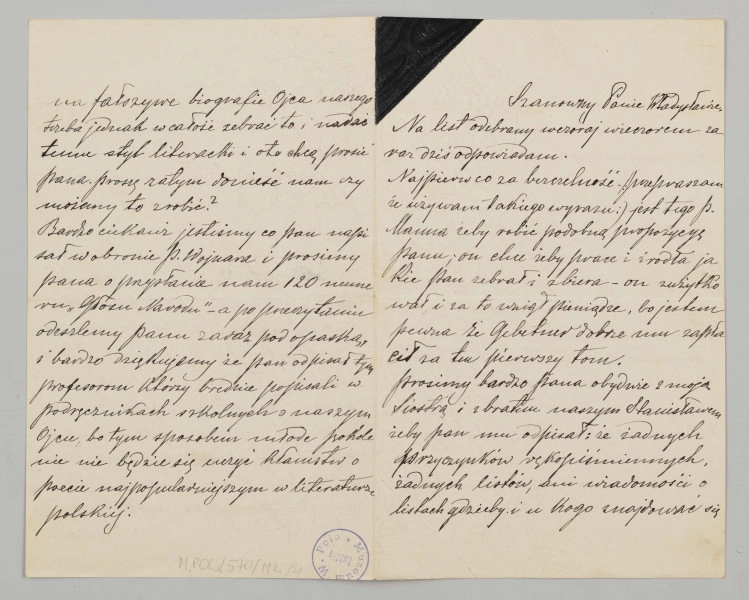 Szanowny Panie Władysławie.
Na list odebrany wczoraj wieczorem za
raz dziś odpowiadam.
Najpierw co za bezczelność - /:przepraszam
że używam takiego wyrazu:/ jest tego p.
Manna żeby robić podobną propozycyę
panu; on chce żeby prace i źródła ja
kie pan zebrał i zbiera - on zużytko
wał i za to wziął pieniądze, bo jestem
pewna że Gebetner dobrze mu zapła
cił za ten pierwszy tom.
Prosimy bardzo pana obydwie z moją
siostrą i z bratem naszym Stanisławem
żeby pan mu odpisał, że żadnych
przyczynków rękopiśmiennych,
żadnych listów, ani wiadomości o
listach gdzieby i u kogo znajdować się
na fałszywe biografie Ojca naszego
trzeba jednak w całość zebrać to i nadać
temu styl literacki i oto chcą prosić
pana. proszę zatym donieść nam czy
możemy to zrobić?
Bardzo ciekawi jesteśmy co pan napi
sał w obronie p. Wojnara i prosimy
pana o przysłanie nam 120 nume
ru „Głosu Narodu" - a po przeczytaniu
odeszlemy panu zaraz pod opaską,
i bardzo dziękujemy że pan odpisał tym
profesorom którzy brednie popisali w
podręcznikach szkolnych o naszym
Ojcu, bo tym sposobem młode pokole
nie nie będzie się uczyć kłamstw o
poecie najpopularniejszym w literaturze
polskiej.
M.POL/570/192/4